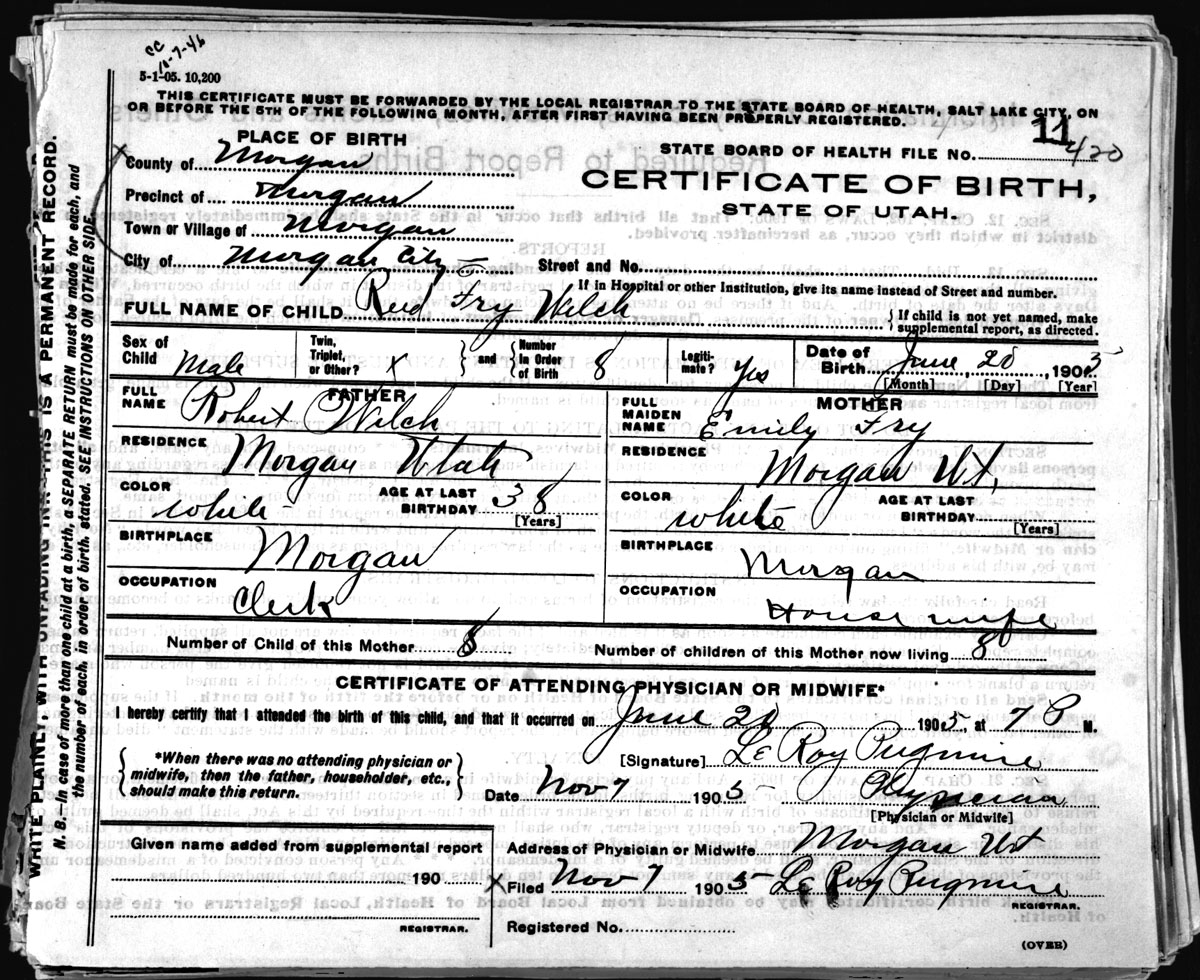 CC
10-7-46
5-1-05. 10,200
THIS CERTIFICATE MUST BE FORWARDED BY THE LOCAL REGISTRAR TO THE STATE BOARD OF HEALTH, SALT LAKE CITY, ON
OR BEFORE THE 5TH OF THE FOLLOWING MONTH, AFTER FIRST HAVING BEEN PROPERLY REGISTERED.
PLACE OF BIRTH
STATE BOARD OF HEALTH FILE No. 11 420
County of Morgan
CERTIFICATE OF BIRTH,
Precinct of Morgan
STATE OF UTAH.
Town or Village of Morgan
City of Morgan City
Street and No.
If in Hospital or other Institution, give its name instead of Street and number.
FULL NAME OF CHILD Fry Welch
{ If child is not yet named, make
supplemental report, as directed.
Sex of Child Male
Twin, Triplet, or Other? X } and { Number in Order of Birth 8
Legitimate? Yes
Date of Birth June 1905
[Month] [Day] [Year]
FATHER
FULL NAME Robert Welch
MOTHER
FULL MAIDEN NAME Emily Fry
RESIDENCE Morgan Utah
RESIDENCE Morgan Ut,
COLOR White
AGE AT LAST BIRTHDAY 38 [Years]
COLOR White
AGE AT LAST BIRTHDAY [Years]
BIRTHPLACE Morgan
BIRTHPLACE Morgan
OCCUPATION Clerk
OCCUPATION House wife
Number of Child of this Mother 8
Number of children of this Mother now living 8
CERTIFICATE OF ATTENDING PHYSICIAN OR MIDWIFE*
I hereby certify that I attended the birth of this child, and that it occurred on June 1905 at M.
{ *When there was no attending physician or
midwife, then the father, householder, etc.,
should make this return. }
[Signature] Le Roy Pugmire
Date Nov 7 1905
Physician
[Physician or Midwife]
Given name added from supplemental report
190
REGISTRAR.
Address of Physician or Midwife Morgan Ut
X Filed Nov 7 1905 Le Roy Pugmire
REGISTRAR.
Registered No.
(OVER)
WRITE PLAINLY, WITH UNFADING INK—THIS IS A PERMANENT RECORD.
N. B.—In case of more than one child at a birth, a SEPARATE RETURN must be made for each, and
the number of each, in order of birth, stated. SEE INSTRUCTIONS ON OTHER SIDE.